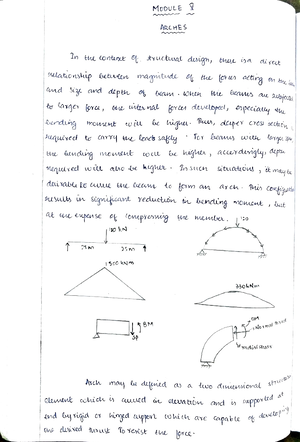 MODULE 8
ARCHES
In the context of structural design, there is a direct
relationship between magnitude of the forces acting on the
and size and depth of beam. When the beams are subjected
to larger force, the internal forces developed, especially the
bending moment will be higher. Thus, deeper cross section
required to carry the loads safely. For beams with larger
the bending moment will be higher, accordingly, depth
required will also be higher. In such situations, it may be
desirable to curve the beams to form an arch. This configuration
results in significant reduction in bending moment, but
at the expense of compressing the member.
120 kN
120
25m 25m
1500 kNm
BM
SF
BM
Normal thrust
Radial shear
Arch may be defined as a two dimensional structural
element which is curved in elevation and is supported at
end by rigid or hinged support which are capable of developing
the desired thrust to resist the force.